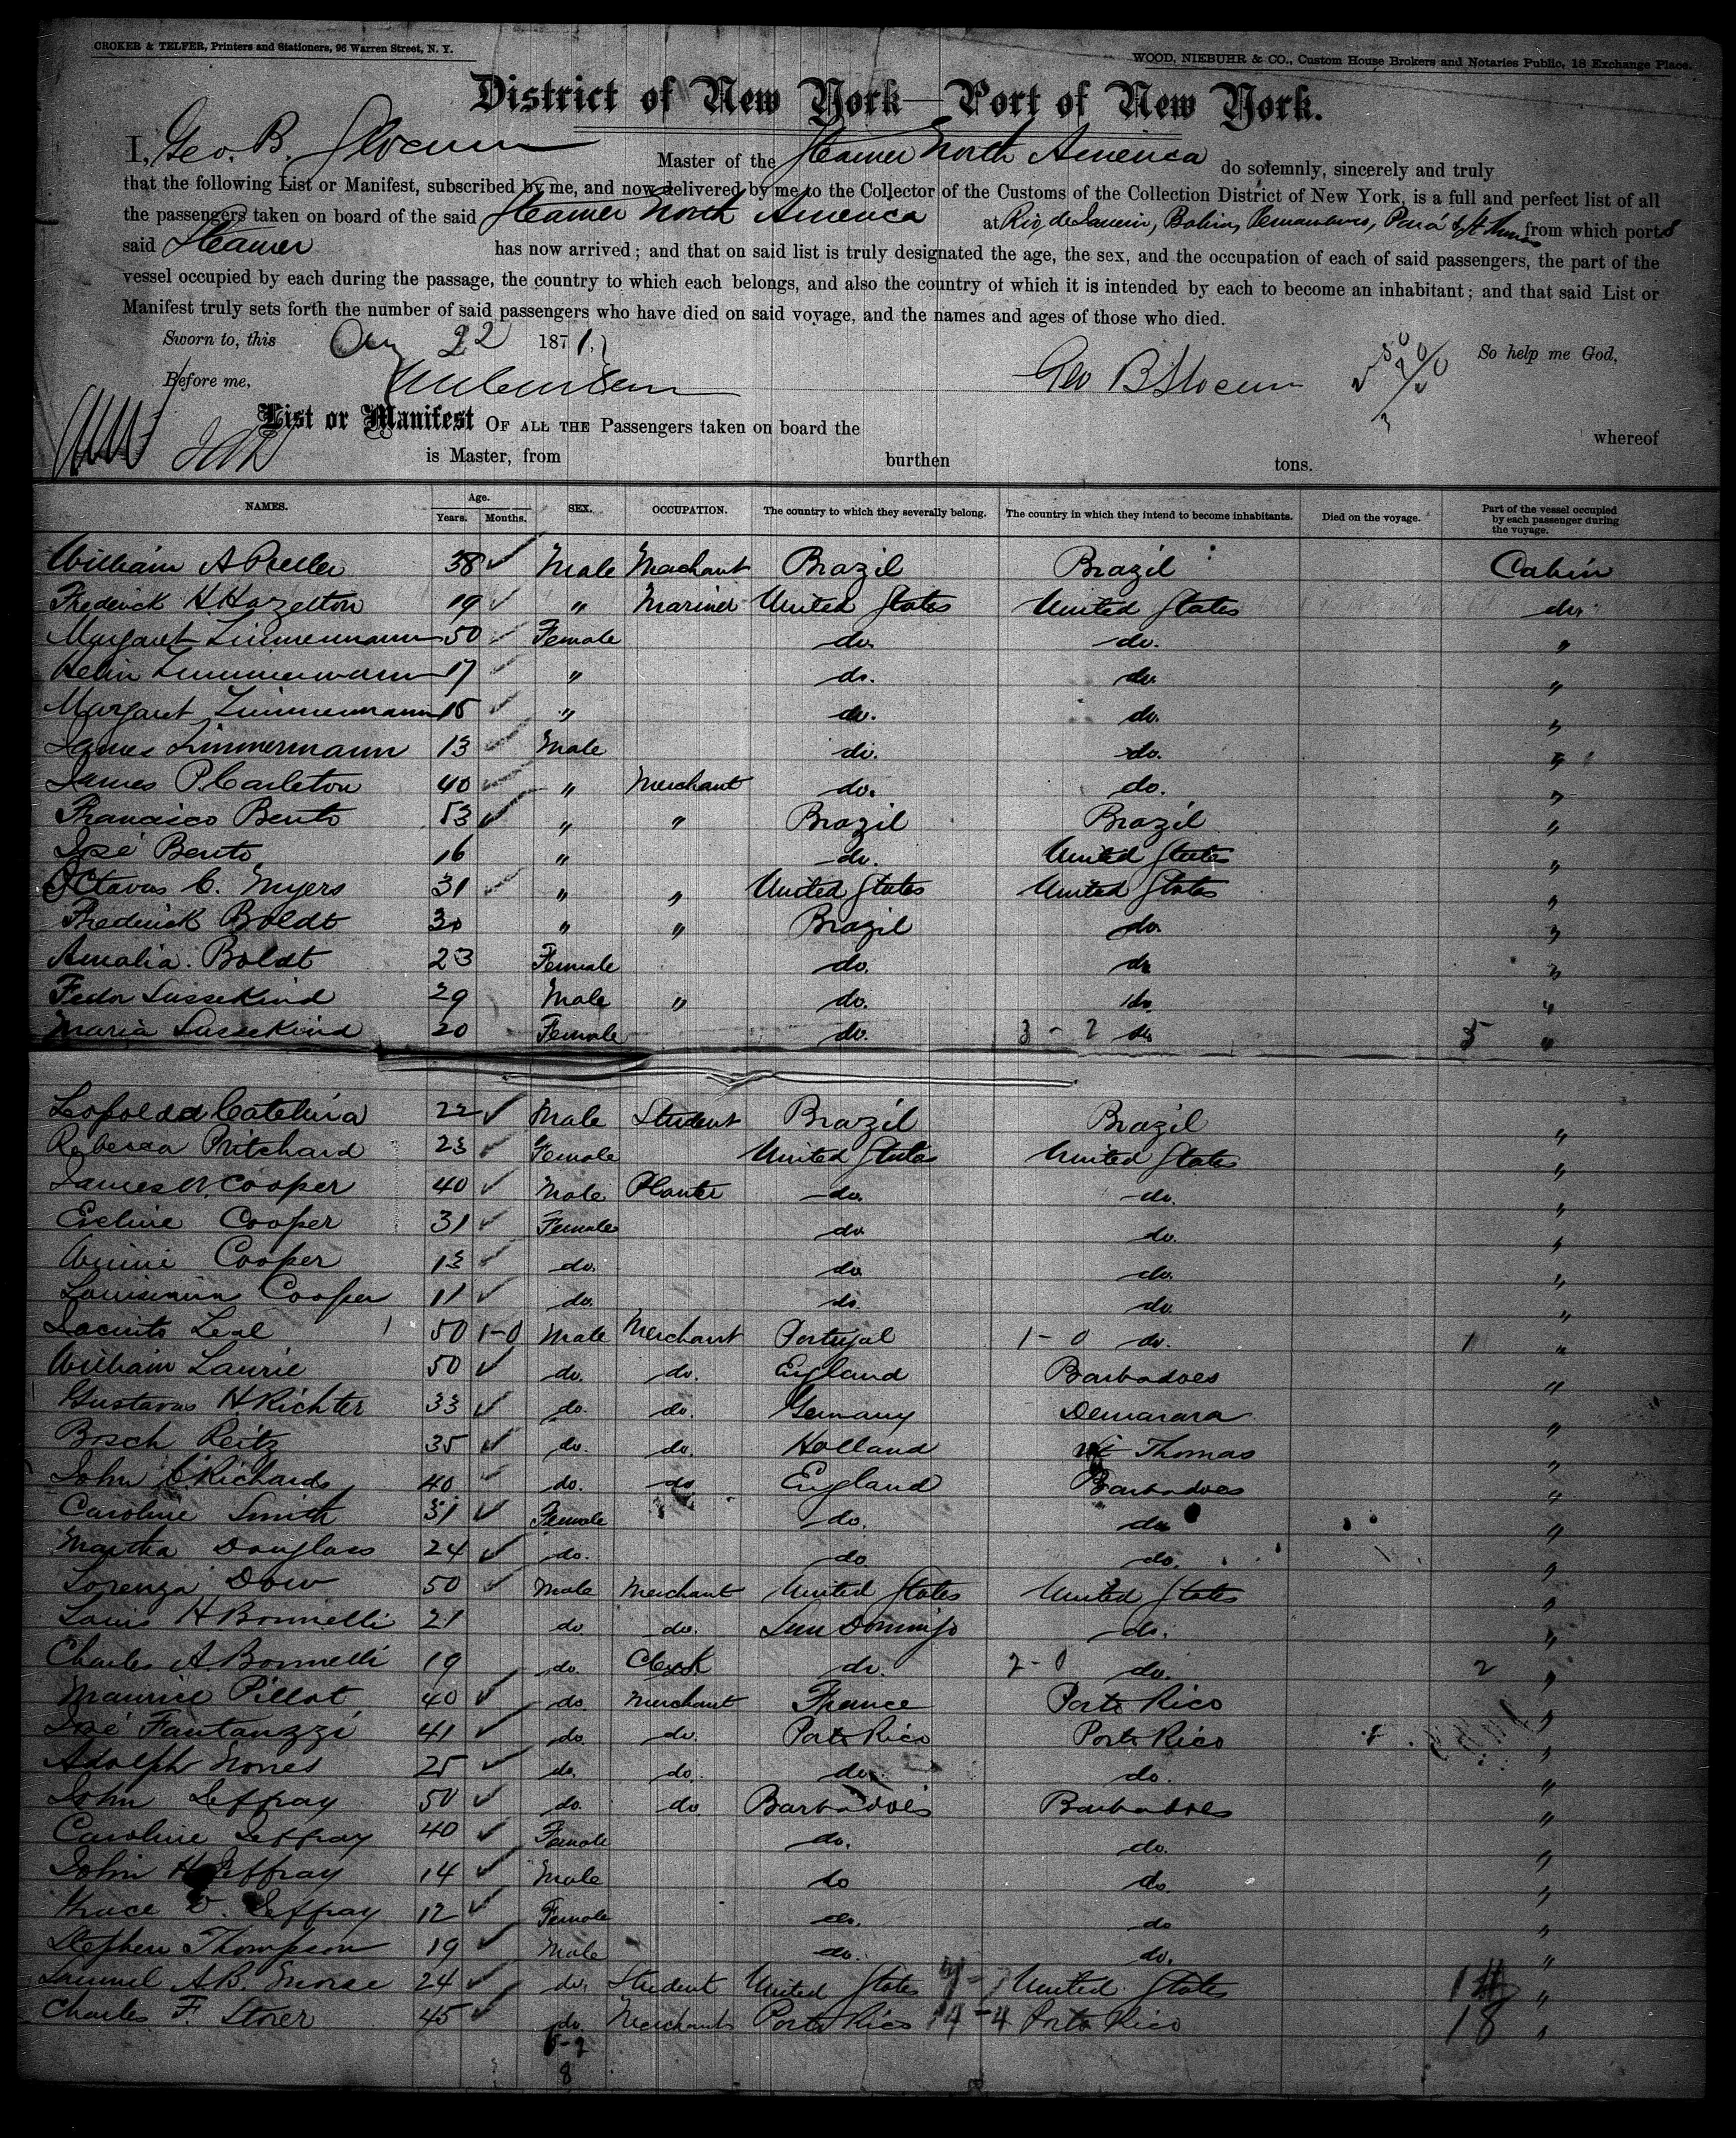 CROKER & TELFER, Printers and Stationers, 96 Warren Street, N. Y.
WOOD, NIEBUHR & CO., Custom House Brokers and Notaries Public, 18 Exchange Place.
District of New York—Port of New York.
I, Geo. B. Slocum Master of the Steamer North America do solemnly, sincerely and truly
that the following List or Manifest, subscribed by me, and now delivered by me to the Collector of the Customs of the Collection District of New York, is a full and perfect list of all
the passengers taken on board of the said Steamer North America at Rio de Janeiro, Bahia, Pernambuco, Pará & St Thomas from which ports
said Steamer has now arrived; and that on said list is truly designated the age, the sex, and the occupation of each of said passengers, the part of the
vessel occupied by each during the passage, the country to which each belongs, and also the country of which it is intended by each to become an inhabitant; and that said List or
Manifest truly sets forth the number of said passengers who have died on said voyage, and the names and ages of those who died.
Sworn to, this Aug 22 1871. So help me God,
Before me, Geo B Slocum
List or Manifest OF ALL THE Passengers taken on board the whereof
is Master, from burthen tons.
NAMES. Age. Years. Months. SEX. OCCUPATION. The country to which they severally belong. The country in which they intend to become inhabitants. Died on the voyage. Part of the vessel occupied by each passenger during the voyage.
William A 38 Male Merchant Brazil Brazil Cabin
Frederick H Hazelton 19 " Mariner United States United States do
Margaret Zimmermann 50 Female do. do. "
Zimmermann 17 " do. do. "
Margaret Zimmermann 15 " do. do. "
James Zimmermann 13 Male do. do. "
James P. Carleton 40 " Merchant do. do. "
Francisco Bento 53 " " Brazil Brazil "
José Bento 16 " do. United States "
Octavus C. Myers 31 " " United States United States "
Frederick Boldt 30 " " Brazil do. "
Amalia Boldt 23 Female do. do "
Fedor Sussekind 29 Male " do. do. "
Maria Sussekind 20 Female do. 3 - 2 do 5 "
22 Male Student Brazil Brazil "
Rebecca Pritchard 23 Female United States United States "
James Cooper 40 Male Planter do. do. "
Eveline Cooper 31 Female do do. "
Annie Cooper 13 do. do do. "
Cooper 11 do. do. do. "
Jacinto Leal 1 50 1-0 Male Merchant Portugal 1 - 0 do. 1 "
William Laurie 50 do. do. England Barbadoes "
Gustavus H. Richter 33 do. do. Germany Demarara "
Bosch Reitz 35 do. do. Holland St Thomas "
John C. Richards 40 do. do England Barbadoes "
Caroline Smith 31 Female do. do "
Martha Douglass 24 do. do do. "
Lorenza Dow 50 Male Merchant United States United States "
Louis H Bonnelli 21 do do. San Domingo do. "
Charles A. Bonnelli 19 do. Clerk do. 2 - 0 do. 2 "
Maurice Pillot 40 do Merchant France Porto Rico "
José Fantauzzi 41 do do. Porto Rico Porto Rico "
Adolph 25 do. do. do. do. "
John Jeffray 50 do. do. Barbadoes Barbadoes "
Caroline Jeffray 40 Female do. do. "
John H Jeffray 14 Male do do. "
Grace Jeffray 12 Female do. do "
Stephen Thompson 19 Male do. do. "
Samuel A B. Morse 24 do. Student United States United States "
Charles F. Storer 45 do Merchant Porto Rico 14 - 4 Porto Rico 18 "
8